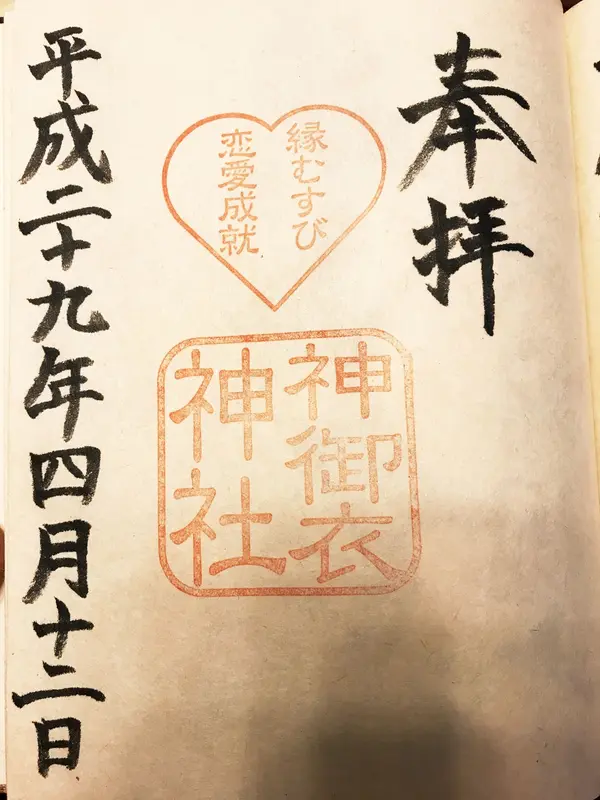 奉拝
縁むすび
恋愛成就
神御衣
神社
平成二十九年四月十二日